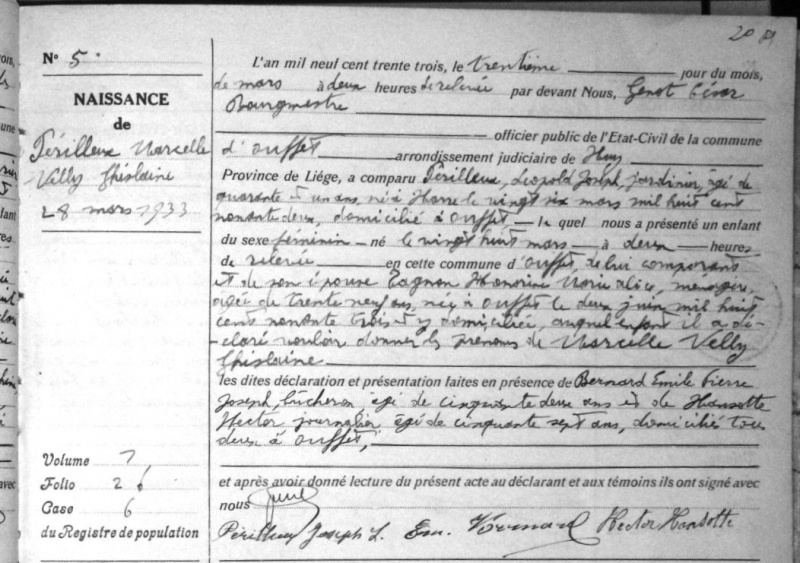 20
N° 5
NAISSANCE
de
Périlleux Marcelle
Velly Ghislaine
28 mars 1933
Volume 7
Folio 26
Case 6
du Registre de population
L'an mil neuf cent trente trois, le trentième jour du mois,
de mars à deux heures de relevée par devant Nous, Genot César
Bourgmestre
officier public de l'Etat-Civil de la commune
d'Ouffet arrondissement judiciaire de Huy
Province de Liége, a comparu Périlleux, Léopold Joseph, jardinier, âgé de
quarante et un ans, né à Harre le vingt six mars mil huit cent
nonante deux, domicilié à Ouffet – le quel nous a présenté un enfant
du sexe féminin – né le vingt huit mars – à deux – heures
de relevée en cette commune d'Ouffet, de lui comparant
et de son épouse Honorine Marie Alice, ménagère,
âgée de trente neuf ans, née à Ouffet le deux juin mil huit
cent nonante trois et y domiciliée, auquel enfant il a dé-
claré vouloir donner les prénoms de Marcelle Velly
Ghislaine
les dites déclaration et présentation faites en présence de Bernard Emile Pierre
Joseph, bucheron âgé de cinquante deux ans et de Hansotte
Hector journalier âgé de cinquante sept ans, domiciliés tous
deux à Ouffet,
et après avoir donné lecture du présent acte au déclarant et aux témoins ils ont signé avec
nous
Périlleux Joseph L. Em. Bernard Hector Hansotte